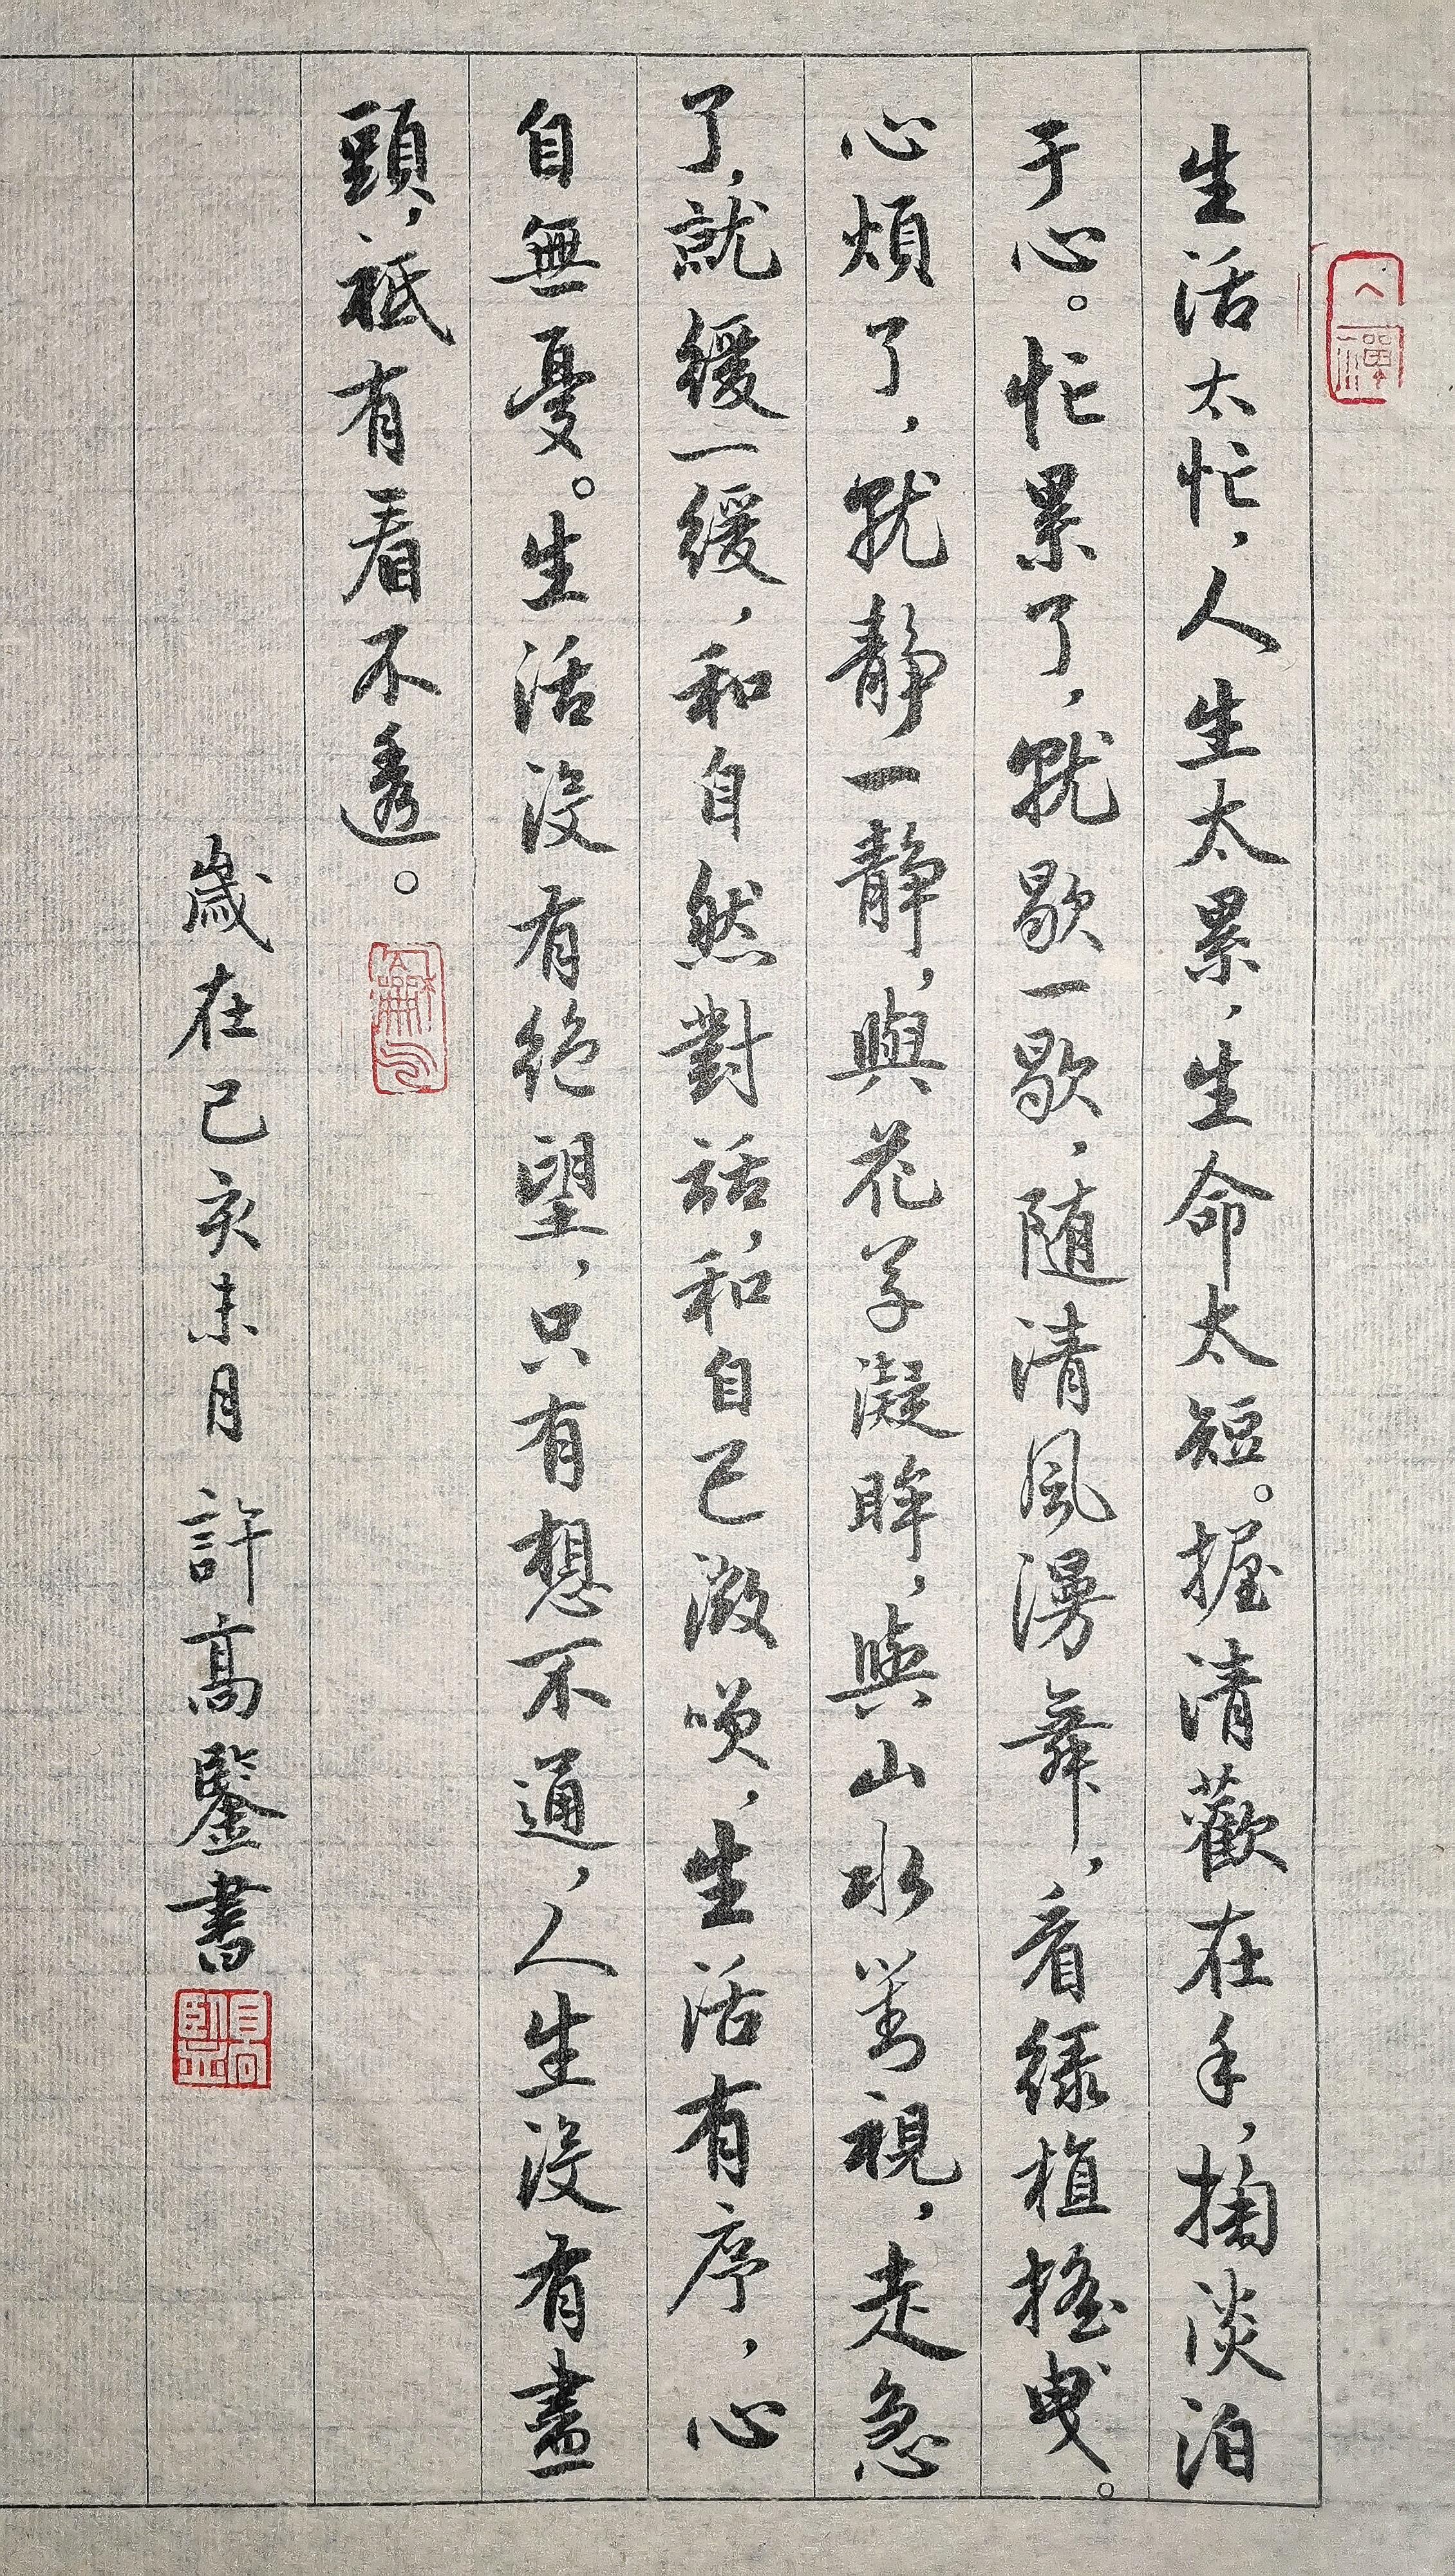 生活太忙，人生太累，生命太短。握清歡在手，掬淡泊
于心。忙累了，就歇一歇，随清風漫舞，看緑植摇曳。
心煩了，就静一静，與花草凝眸，與山水對視，走急
了，就緩一緩，和自然對話，和自己微笑，生活有序，心
自無憂。生活没有絶望，只有想不通，人生没有盡
頭，衹有看不透。
歲在己亥未月 許高鑒書
高鑒